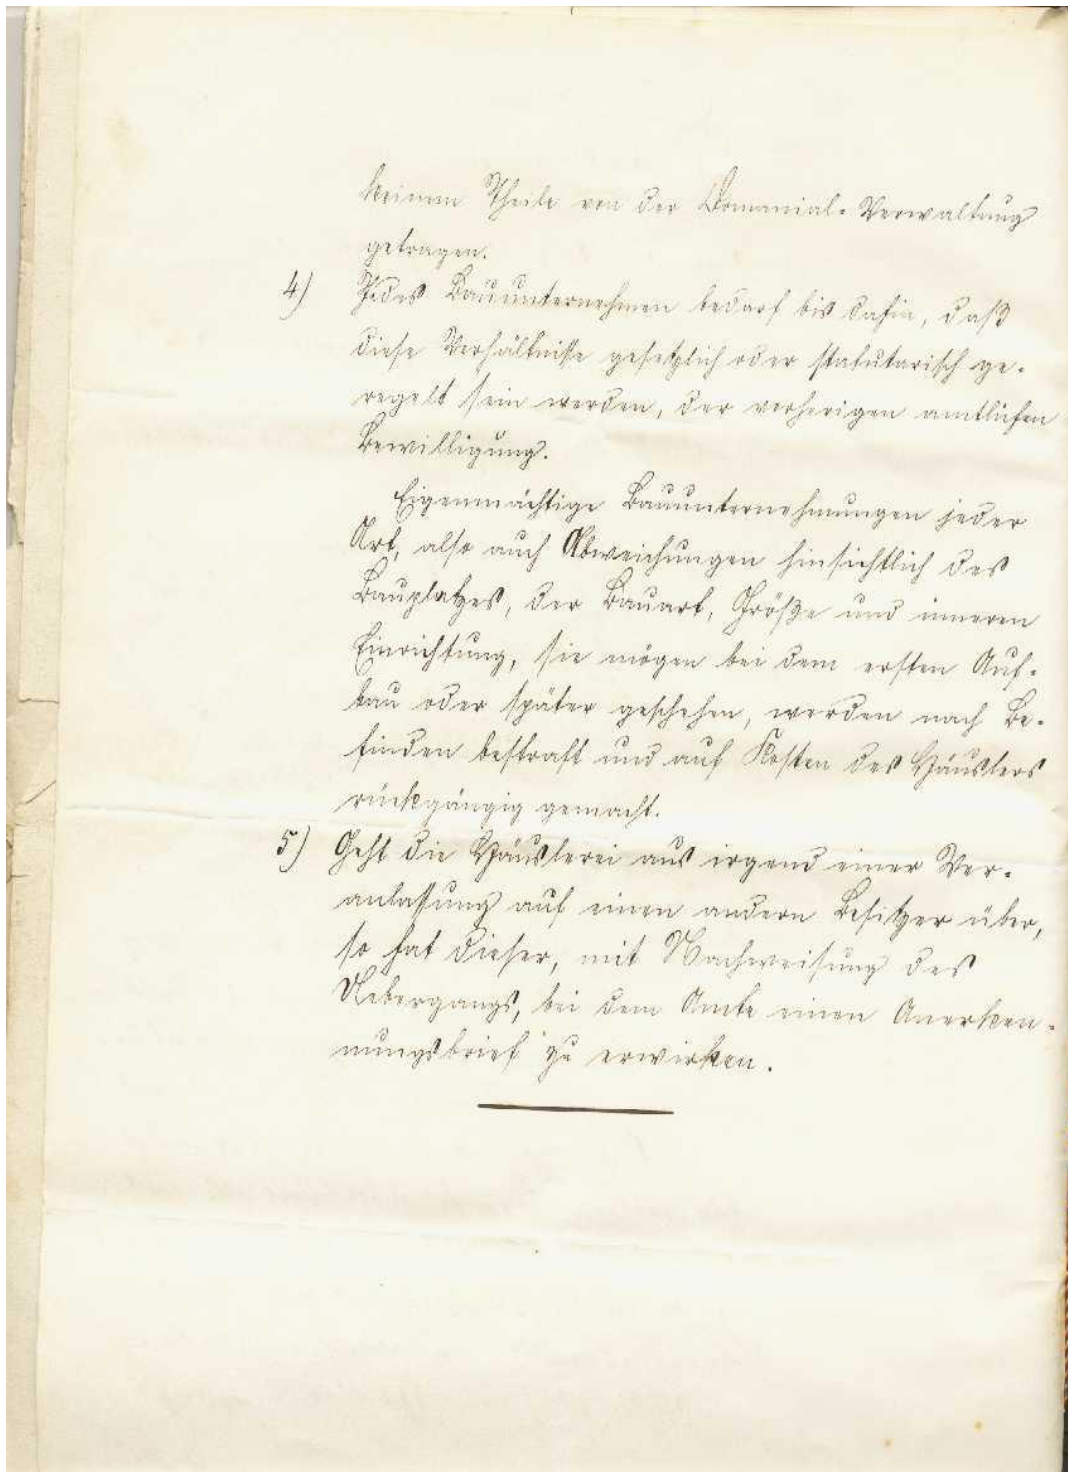 keinem Theile von der Domanial-Verwaltung
getragen.
4) Jedes Bauunternehmen bedarf bis dahin, daß
diese Verhältnisse gesetzlich oder statutarisch ge-
regelt sein werden, der vorherigen amtlichen
Bewilligung.
Eigenmächtige Bauunternehmungen jeder
Art, also auch Abweichungen hinsichtlich des
Bauplatzes, der Bauart, Größe und inneren
Einrichtung, sie mögen bei dem ersten Auf-
bau oder später geschehen, werden nach Be-
finden bestraft und auf Kosten des Häuslers
rückgängig gemacht.
5) Geht die Häuslerei aus irgend einer Ver-
anlassung auf einen andern Besitzer über,
so hat dieser, mit Nachweisung des
Uebergangs, bei dem Amte einen Anerken-
nungsbrief zu erwirken.